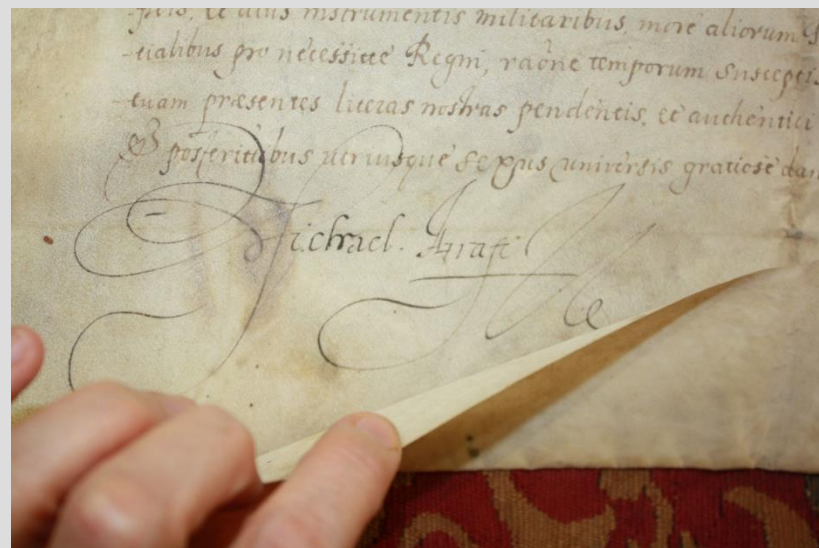 -pris, et alijs instrumentis militaribus, more aliorum
-tialibus pro necessitte Regni, raone temporum suscepti
-tuam præsentes literas nostras pendentis, et authentici
posteritatibus utriusque Sexus universis gratiose
Michael. Apafi